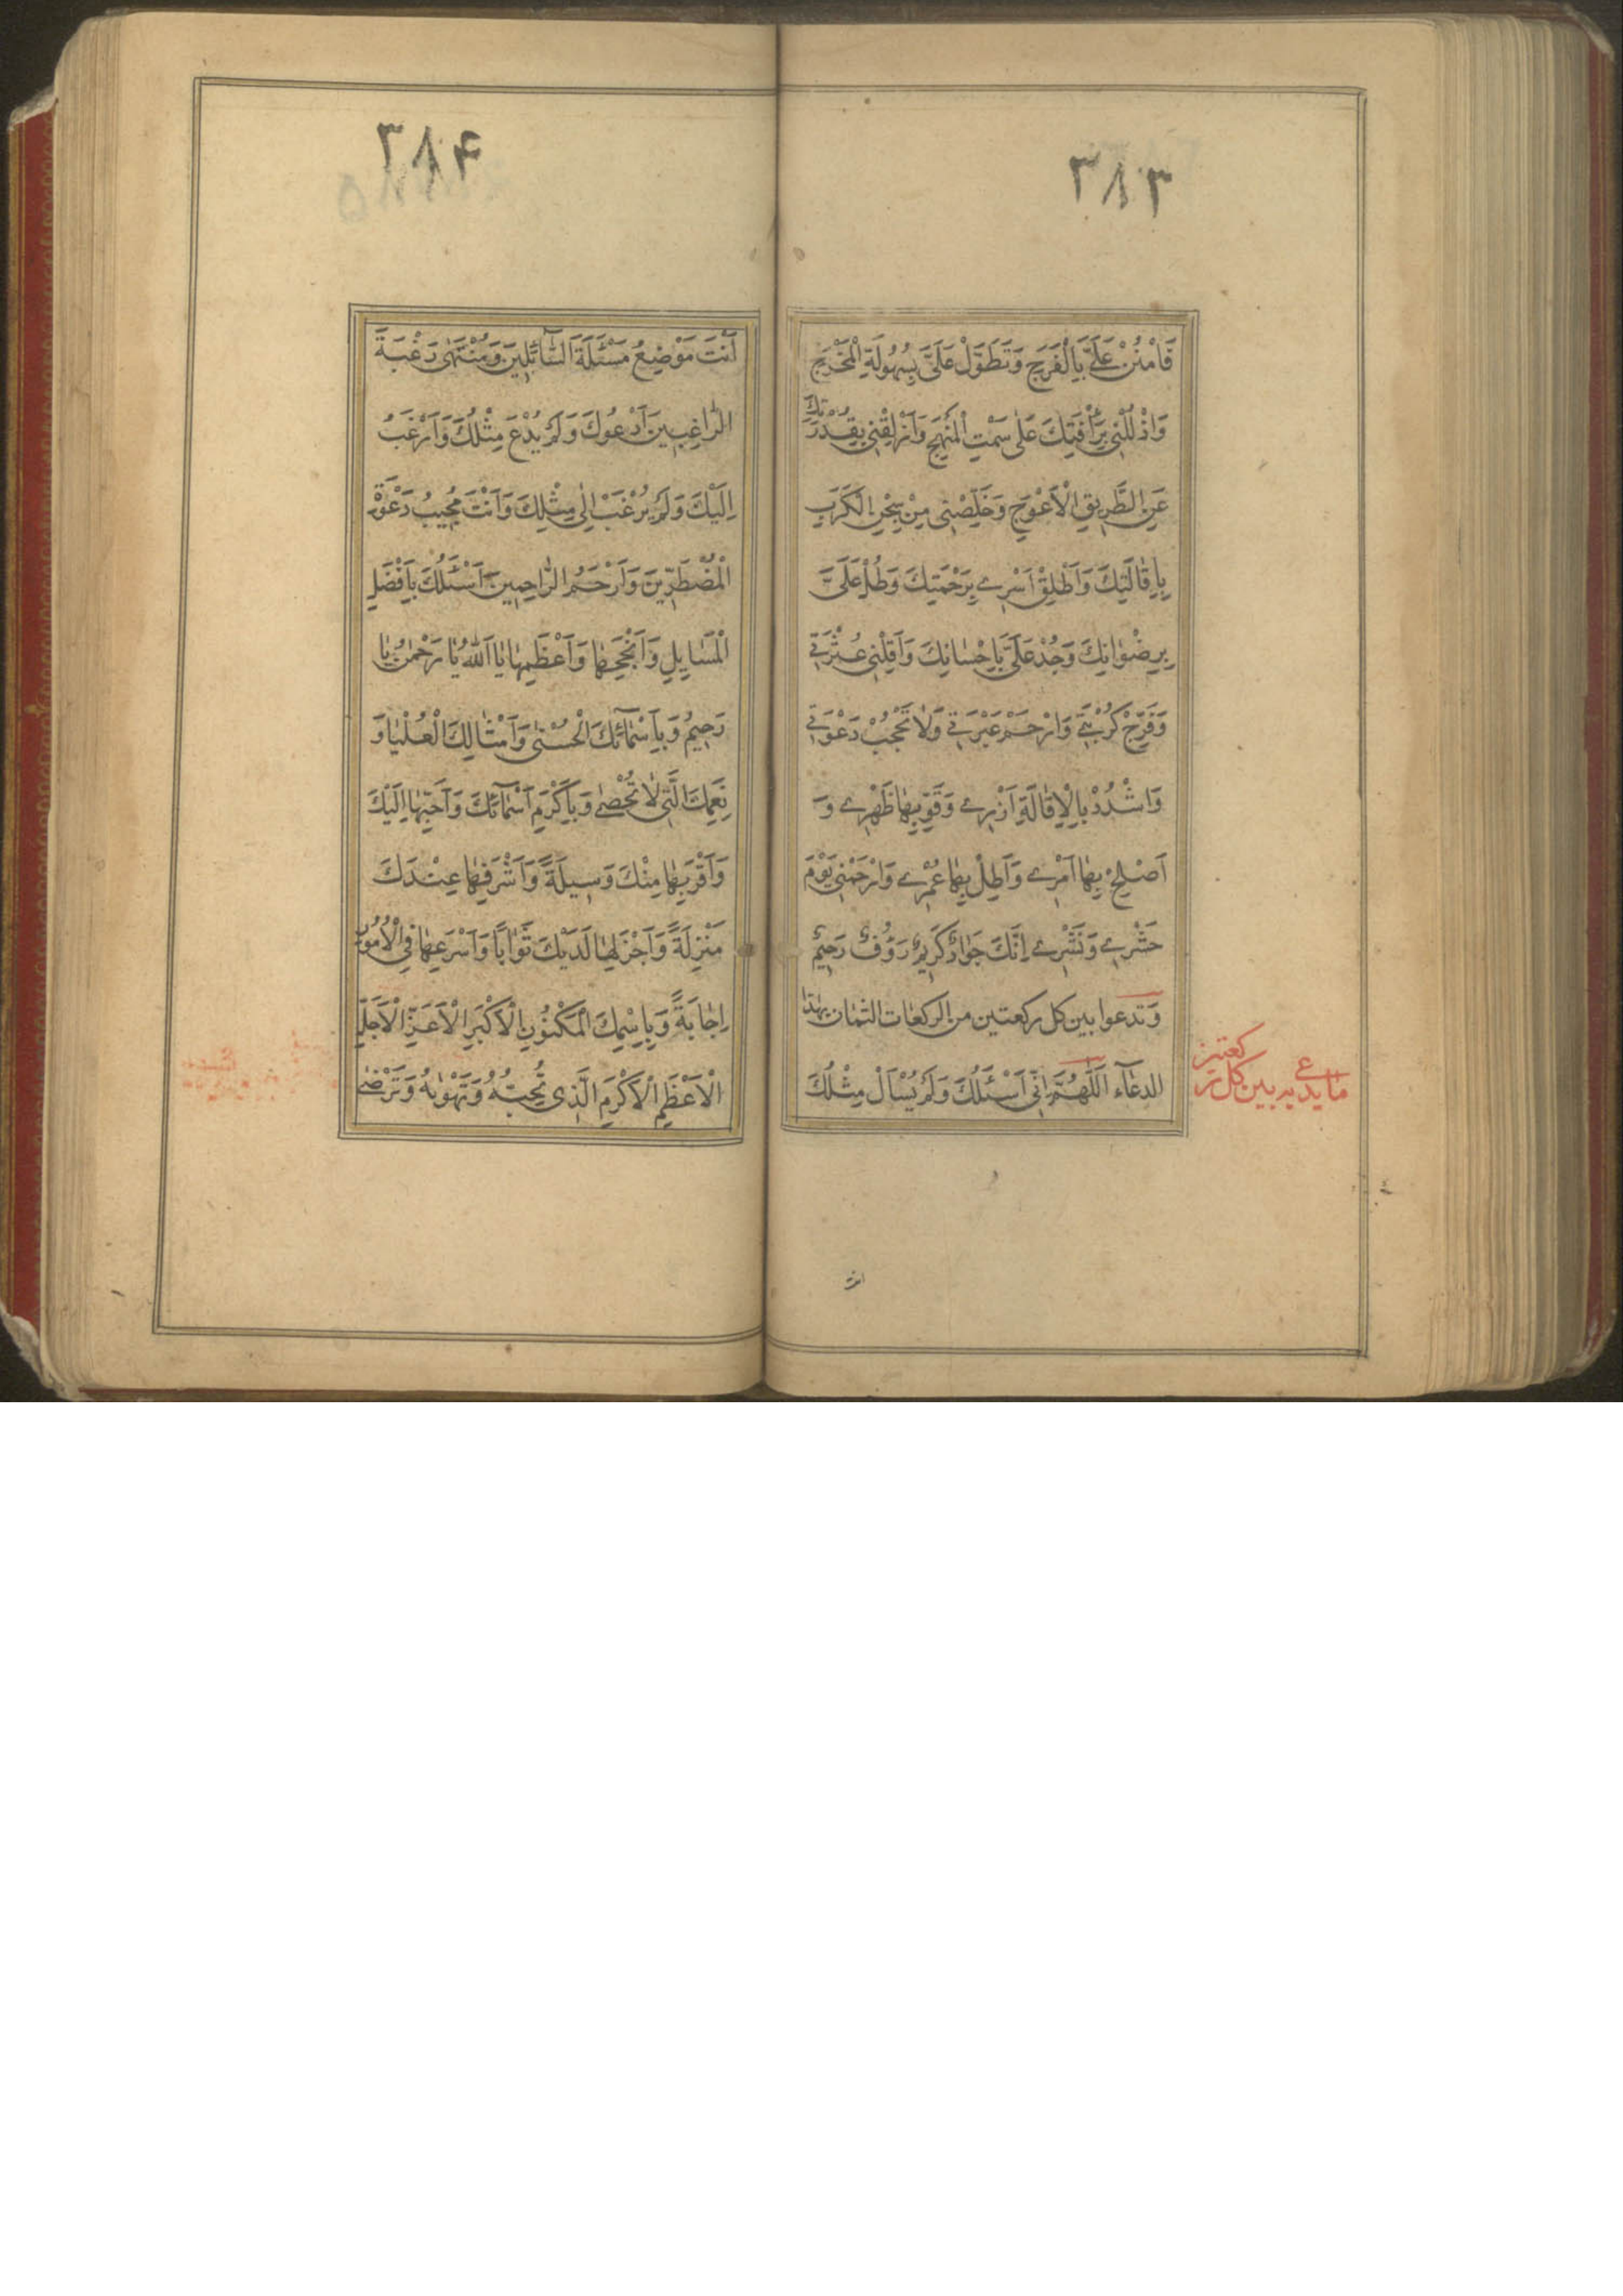 ٣٨٣
فَامْنُنْ عَلَيَّ بِالْفَرَجِ وَتَطَوَّلْ عَلَيَّ بِسُهُولَةِ الْمَخْرَجِ
وَادْلُلْنِي بِرَأْفَتِكَ عَلَى سَمْتِ الْمَنْهَجِ وَأَزْلِقْنِي بِقُدْرَتِكَ
عَنِ الطَّرِيقِ الْأَعْوَجِ وَخَلِّصْنِي مِنْ سِجْنِ الْكَرْبِ
بِإِقَالَتِكَ وَأَطْلِقْ أَسْرِي بِرَحْمَتِكَ وَطُلْ عَلَيَّ
بِرِضْوَانِكَ وَجُدْ عَلَيَّ بِإِحْسَانِكَ وَأَقِلْنِي عَثْرَتِي
وَفَرِّجْ كُرْبَتِي وَارْحَمْ عَبْرَتِي وَلَا تَحْجُبْ دَعْوَتِي
وَاشْدُدْ بِالْإِقَالَةِ أَزْرِي وَقَوِّ بِهَا ظَهْرِي وَ
أَصْلِحْ بِهَا أَمْرِي وَأَطِلْ بِهَا عُمْرِي وَارْحَمْنِي يَوْمَ
حَشْرِي وَنَشْرِي إِنَّكَ جَوَادٌ كَرِيمٌ رَؤُفٌ رَحِيمٌ
وَتدعوا بين كل ركعتين من الركعات الثمان بهذا
الدعآء اَللَّهُمَّ اِنِّي اَسْئَلُكَ وَلَمْ يُسْأَلْ مِثْلُكَ
ما يدعى به بين كل ركعتين
انت
٣٨۴
اَنْتَ مَوْضِعُ مَسْئَلَةِ السَّآئِلِينَ وَمُنْتَهٰى رَغْبَةِ
الرَّاغِبِينَ اَدْعُوكَ وَلَمْ يُدْعَ مِثْلُكَ وَاَرْغَبُ
اِلَيْكَ وَلَمْ يُرْغَبْ اِلٰى مِثْلِكَ وَاَنْتَ مُجِيبُ دَعْوَةِ
الْمُضْطَرِّينَ وَاَرْحَمُ الرَّاحِمِينَ اَسْئَلُكَ بِاَفْضَلِ
الْمَسَايِلِ وَاَنْجَحِهَا وَاَعْظَمِهَا يَا اَللّٰهُ يَا رَحْمٰنُ يَا
رَحِيمُ وَبِاَسْمَآئِكَ الْحُسْنٰى وَاَمْثَالِكَ الْعُلْيَا وَ
نِعَمِكَ الَّتِي لَا تُحْصٰى وَبِاَكْرَمِ اَسْمَآئِكَ وَاَحَبِّهَا اِلَيْكَ
وَاَقْرَبِهَا مِنْكَ وَسِيلَةً وَاَشْرَفِهَا عِنْدَكَ
مَنْزِلَةً وَاَجْزَلِهَا لَدَيْكَ ثَوَابًا وَاَسْرَعِهَا فِي الْاُمُورِ
اِجَابَةً وَبِاِسْمِكَ الْمَكْنُونِ الْاَكْبَرِ الْاَعَزِّ الْاَجَلِّ
الْاَعْظَمِ الْاَكْرَمِ الَّذِي تُحِبُّهُ وَتَهْوٰيهُ وَتَرْضٰى